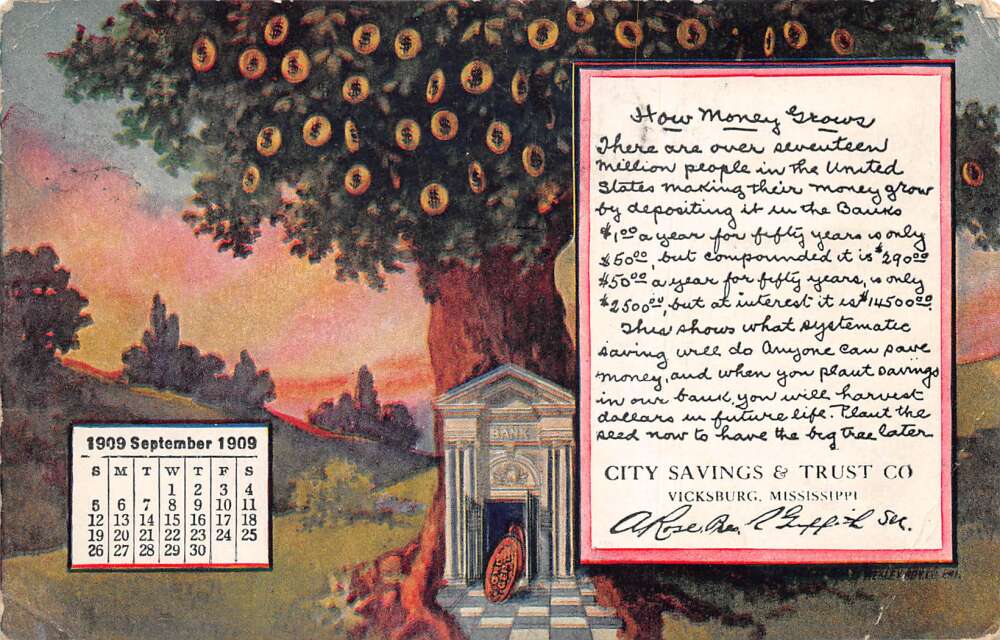 How Money Grows
There are over seventeen
million people in the United
States making their money grow
by depositing it in the Banks
$1.00 a year for fifty years is only
$50.00, but compounded it is $290.00
$50.00 a year for fifty years, is only
$2500.00, but at interest it is $14500.00.
This shows what systematic
saving will do Anyone can save
money, and when you plant savings
in our bank, you will harvest
dollars in future life. Plant the
seed now to have the big tree later
CITY SAVINGS & TRUST CO
VICKSBURG, MISSISSIPPI
A Rose, Pres.
BANK
ONE CENT
1909 September 1909
S M T W T F S
1 2 3 4
5 6 7 8 9 10 11
12 13 14 15 16 17 18
19 20 21 22 23 24 25
26 27 28 29 30